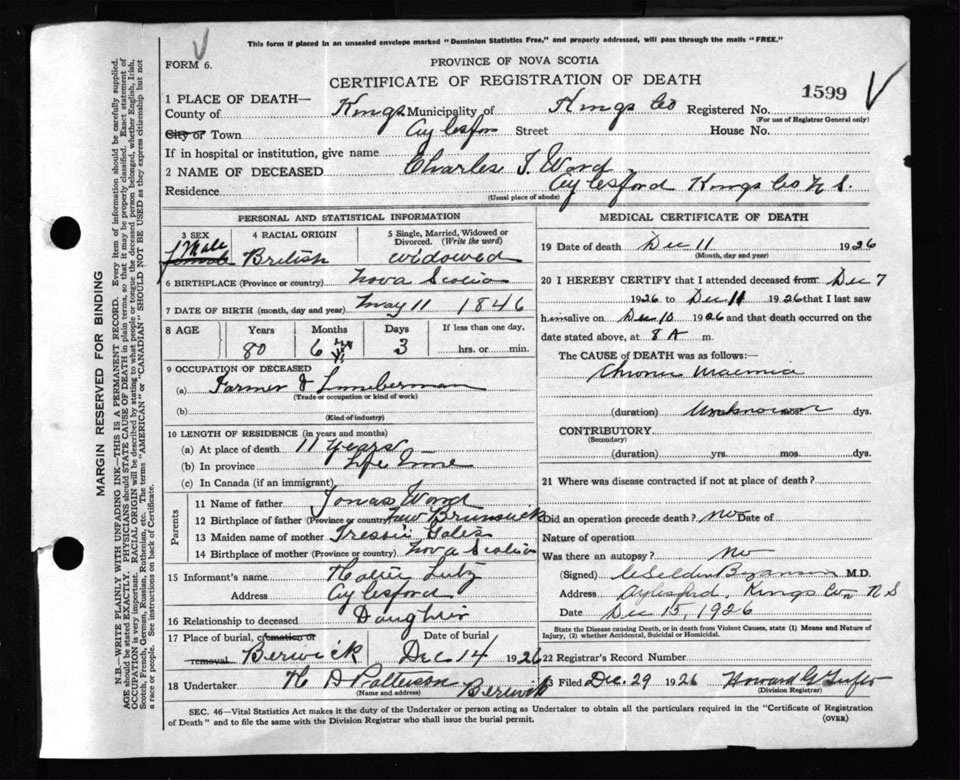 This form if placed in an unsealed envelope marked "Dominion Statistics Free," and properly addressed, will pass through the mails "FREE."
FORM 6.
PROVINCE OF NOVA SCOTIA
CERTIFICATE OF REGISTRATION OF DEATH
1599
1 PLACE OF DEATH—
County of Kings Municipality of Kings Co Registered No.
(For use of Registrar General only)
City or Town Aylesford Street House No.
If in hospital or institution, give name
2 NAME OF DECEASED Charles I. Ward
Residence Aylesford Kings Co N S.
(Usual place of abode)
PERSONAL AND STATISTICAL INFORMATION
3 SEX
Male
Female
4 RACIAL ORIGIN
British
5 Single, Married, Widowed or Divorced. (Write the word)
widowed
6 BIRTHPLACE (Province or country) Nova Scotia
7 DATE OF BIRTH (month, day and year) May 11 1846
8 AGE Years Months Days If less than one day.
80 6 3 hrs. or min.
9 OCCUPATION OF DECEASED
(a) Farmer & Lumberman
(Trade or occupation or kind of work)
(b)
(Kind of industry)
10 LENGTH OF RESIDENCE (in years and months)
(a) At place of death 11 Years
(b) In province Life Time
(c) In Canada (if an immigrant)
Parents
11 Name of father Jonas Ward
12 Birthplace of father (Province or country) New Brunswick
13 Maiden name of mother
14 Birthplace of mother (Province or country) Nova Scotia
15 Informant's name Lutz
Address Aylesford
16 Relationship to deceased Daughter
17 Place of burial, cremation or removal Berwick
Date of burial Dec 14 1926
18 Undertaker H D Patterson Berwick
(Name and address)
MEDICAL CERTIFICATE OF DEATH
19 Date of death Dec 11 1926
(Month, day and year)
20 I HEREBY CERTIFY that I attended deceased from Dec 7
1926 to Dec 11 1926 that I last saw
him alive on Dec 10 1926 and that death occurred on the
date stated above, at 8 A m.
The CAUSE of DEATH was as follows:
Chronic Uraemia
(duration) Unknown dys.
CONTRIBUTORY
(Secondary)
(duration) yrs. mos. dys.
21 Where was disease contracted if not at place of death?
Did an operation precede death? no Date of
Nature of operation
Was there an autopsy? no
(Signed) M.D.
Address Aylesford, Kings Co. N S
Date Dec 15, 1926
State the Disease causing Death, or in death from Violent Causes, state (1) Means and Nature of Injury, (2) whether Accidental, Suicidal or Homicidal.
22 Registrar's Record Number
Filed Dec. 29 1926 Howard G
(Division Registrar)
SEC. 46—Vital Statistics Act makes it the duty of the Undertaker or person acting as Undertaker to obtain all the particulars required in the "Certificate of Registration
of Death" and to file the same with the Division Registrar who shall issue the burial permit.
(OVER)
MARGIN RESERVED FOR BINDING
N.B.—WRITE PLAINLY, WITH UNFADING INK—THIS IS A PERMANENT RECORD. Every item of information should be carefully supplied.
AGE should be stated EXACTLY. PHYSICIANS should STATE CAUSE OF DEATH in plain terms, so that it may be properly classified. Exact statement of
OCCUPATION is very important. RACIAL ORIGIN will be described by stating to what people or tongue the deceased person belonged, whether English, Irish,
Scotch, French, German, Russian, Ruthenian, etc. The terms "AMERICAN" or "CANADIAN" SHOULD NOT BE USED as they express citizenship but not
a race or people. See instructions on back of Certificate.